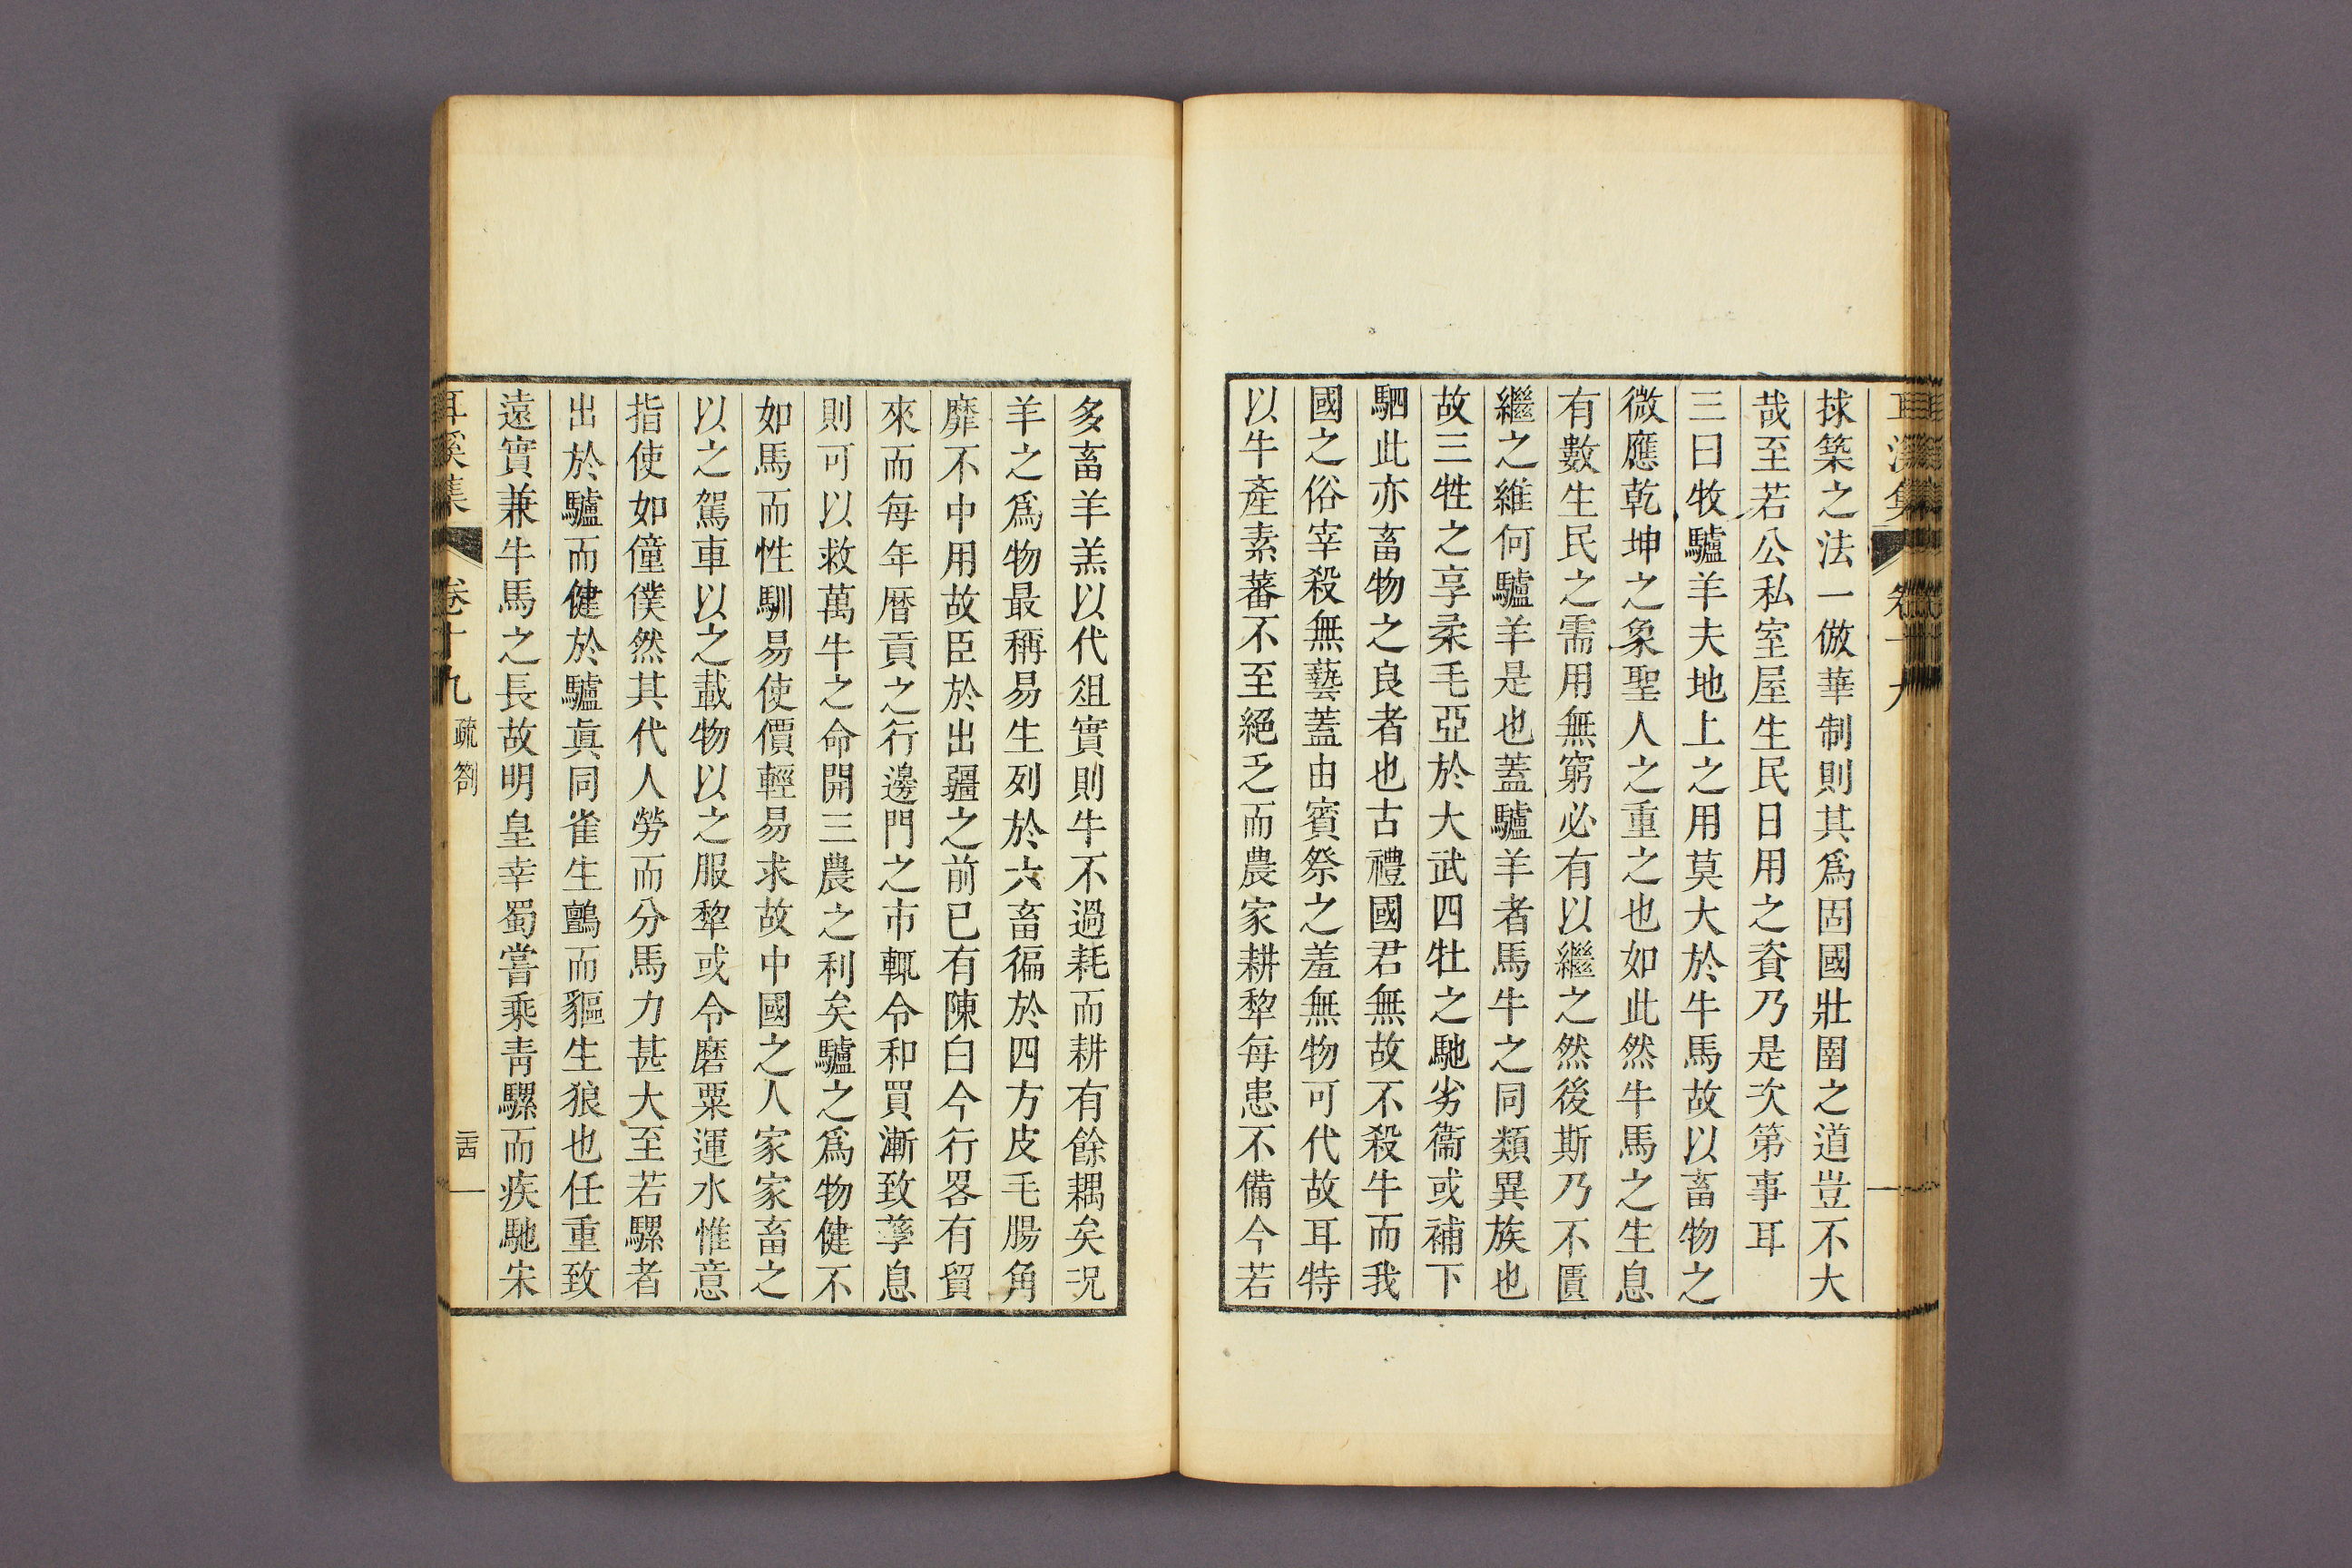 捄築之法一倣華制則其爲固國壯圉之道豈不大
哉至若公私室屋生民日用之資乃是次第事耳
三曰牧驢羊夫地上之用莫大於牛馬故以畜物之
微應乾坤之象聖人之重之也如此然牛馬之生息
有數生民之需用無窮必有以繼之然後斯乃不匱
繼之維何驢羊是也蓋驢羊者馬牛之同類異族也
故三牲之享柔毛亞於大武四牡之馳劣衞或補下
駟此亦畜物之良者也古禮國君無故不殺牛而我
國之俗宰殺無藝蓋由賓祭之羞無物可代故耳特
以牛產素蕃不至絕乏而農家耕犂每患不備今若
多畜羊羔以代俎實則牛不過耗而耕有餘耦矣况
羊之爲物最稱易生列於六畜徧於四方皮毛腸角
靡不中用故臣於出疆之前已有陳白今行畧有貿
來而每年曆貢之行邊門之市輒令和買漸致孳息
則可以救萬牛之命開三農之利矣驢之爲物健不
如馬而性馴易使價輕易求故中國之人家家畜之
以之駕車以之載物以之服犂或令磨粟運水惟意
指使如僮僕然其代人勞而分馬力甚大至若騾者
出於驢而健於驢眞同雀生鸇而貙生狼也任重致
遠實兼牛馬之長故明皇幸蜀嘗乘靑騾而疾馳宋
耳溪集 卷十九 疏劄 二十四